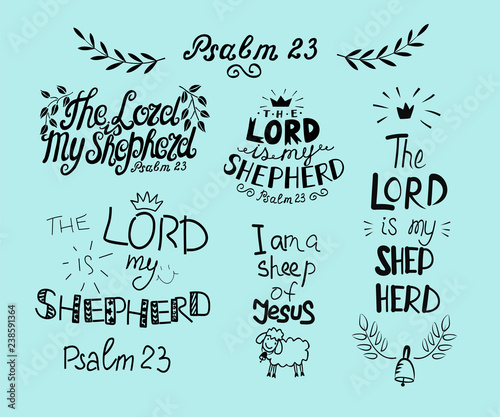 Psalm 23
The Lord
is
My Shepherd
Psalm 23
THE
LORD
is my
SHEPHERD
Psalm 23
The
LORD
is my
SHEP
HERD
THE LORD
IS my
SHEPHERD
Psalm 23
I am a
sheep
of
Jesus
Adobe Stock | #238591364